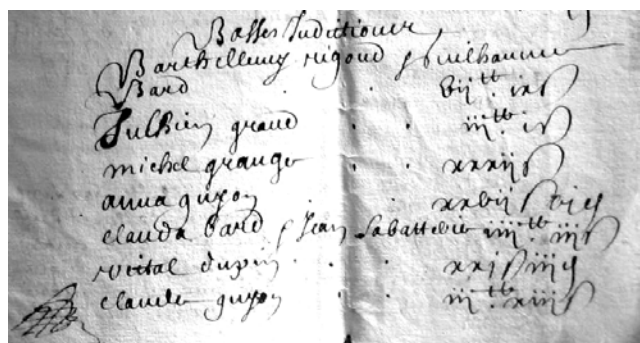 Basses Judictiones
Barthellemy rigoud p guilhaume
Bard . . bij tt ix s
Jullien graud . . iij tt ix s
michel grange . . xxxij s
anna guyon xxbij s bj d
clauda bard p Jean Sabattelier iiij tt iiij s
vuital dupin . . . xxj s iiij d
claude guyon . . iij tt xiij s